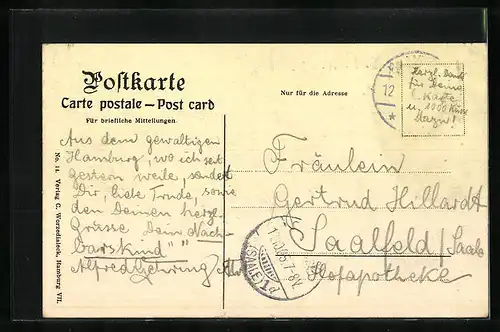 Postkarte
Carte postale — Post card
Für briefliche Mitteilungen.
Nur für die Adresse
Herzl. Dank
für Deine
Karte
u. 1000 Küsse
dazu!
12
Aus dem gewaltigen
Hamburg, wo ich seit
gestern weile, sendet
Dir, liebe Trude, sowie
den Deinen herzl.
Grüsse Dein Nach-
barskind""
Alfred
Fräulein
Gertrud Hillardt
Saalfeld/Saale
Hofapotheke
(SAALE)
7-8V.
No. 14. Verlag C. Worzedialeck, Hamburg VII.